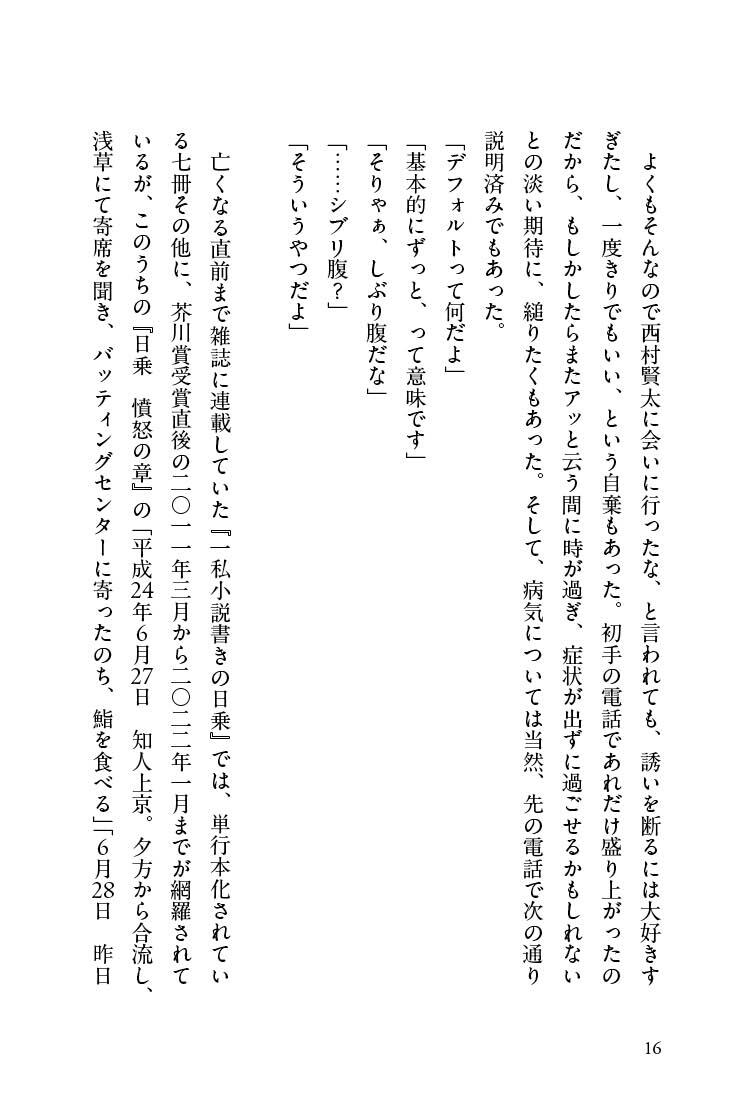 よくもそんなので西村賢太に会いに行ったな、と言われても、誘いを断るには大好きす
ぎたし、一度きりでもいい、という自棄もあった。初手の電話であれだけ盛り上がったの
だから、もしかしたらまたアッと云う間に時が過ぎ、症状が出ずに過ごせるかもしれない
との淡い期待に、縋りたくもあった。そして、病気については当然、先の電話で次の通り
説明済みでもあった。
「デフォルトって何だよ」
「基本的にずっと、って意味です」
「そりゃぁ、しぶり腹だな」
「……シブリ腹？」
「そういうやつだよ」
　亡くなる直前まで雑誌に連載していた『一私小説書きの日乗』では、単行本化されてい
る七冊その他に、芥川賞受賞直後の二〇一一年三月から二〇二二年一月までが網羅されて
いるが、このうちの『日乗　憤怒の章』の「平成24年6月27日　知人上京。夕方から合流し、
浅草にて寄席を聞き、バッティングセンターに寄ったのち、鮨を食べる」「6月28日　昨日
16